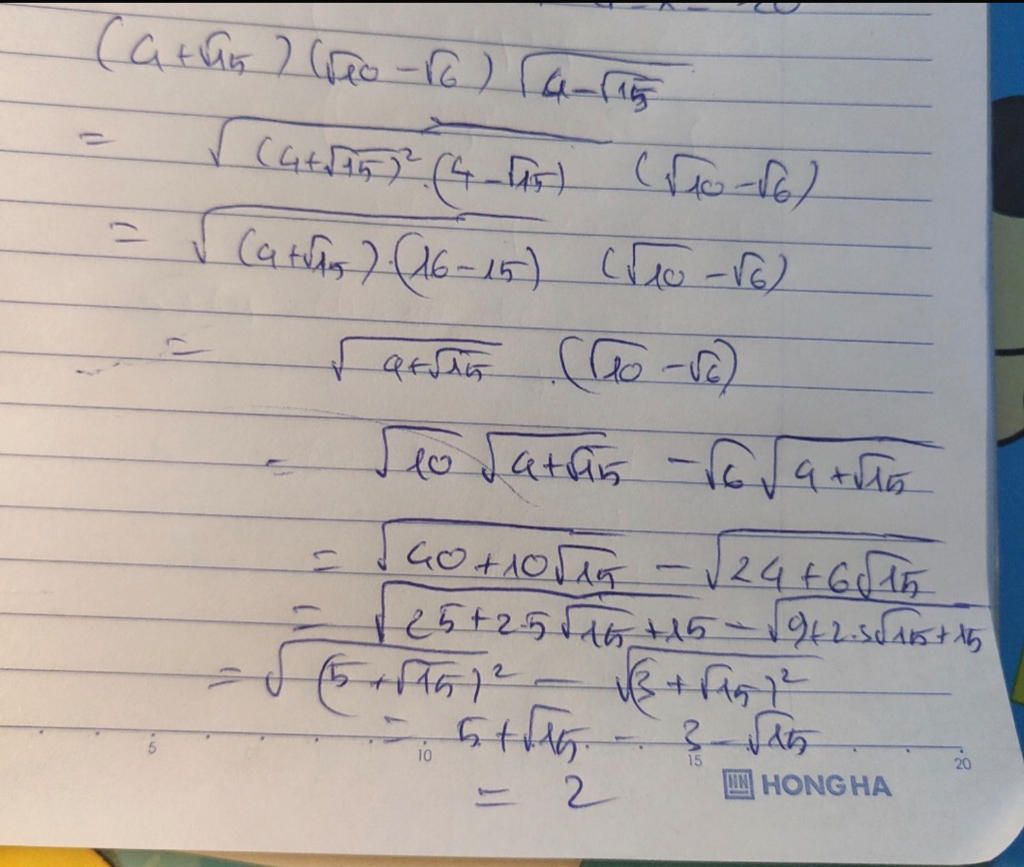 (4+√15)(√10-√6)√(4-√15)
= √((4+√15)².(4-√15)) (√10-√6)
= √((4+√15).(16-15)) (√10-√6)
= √(4+√15) .(√10-√6)
= √10 √(4+√15) - √6 √(4+√15)
= √(40+10√15) - √(24+6√15)
= √(25+2.5√15+15) - √(9+2.3√15+15)
= √((5+√15)²) - √((3+√15)²)
= 5+√15 - 3-√15
= 2
5 10 15 20
HH HONG HA